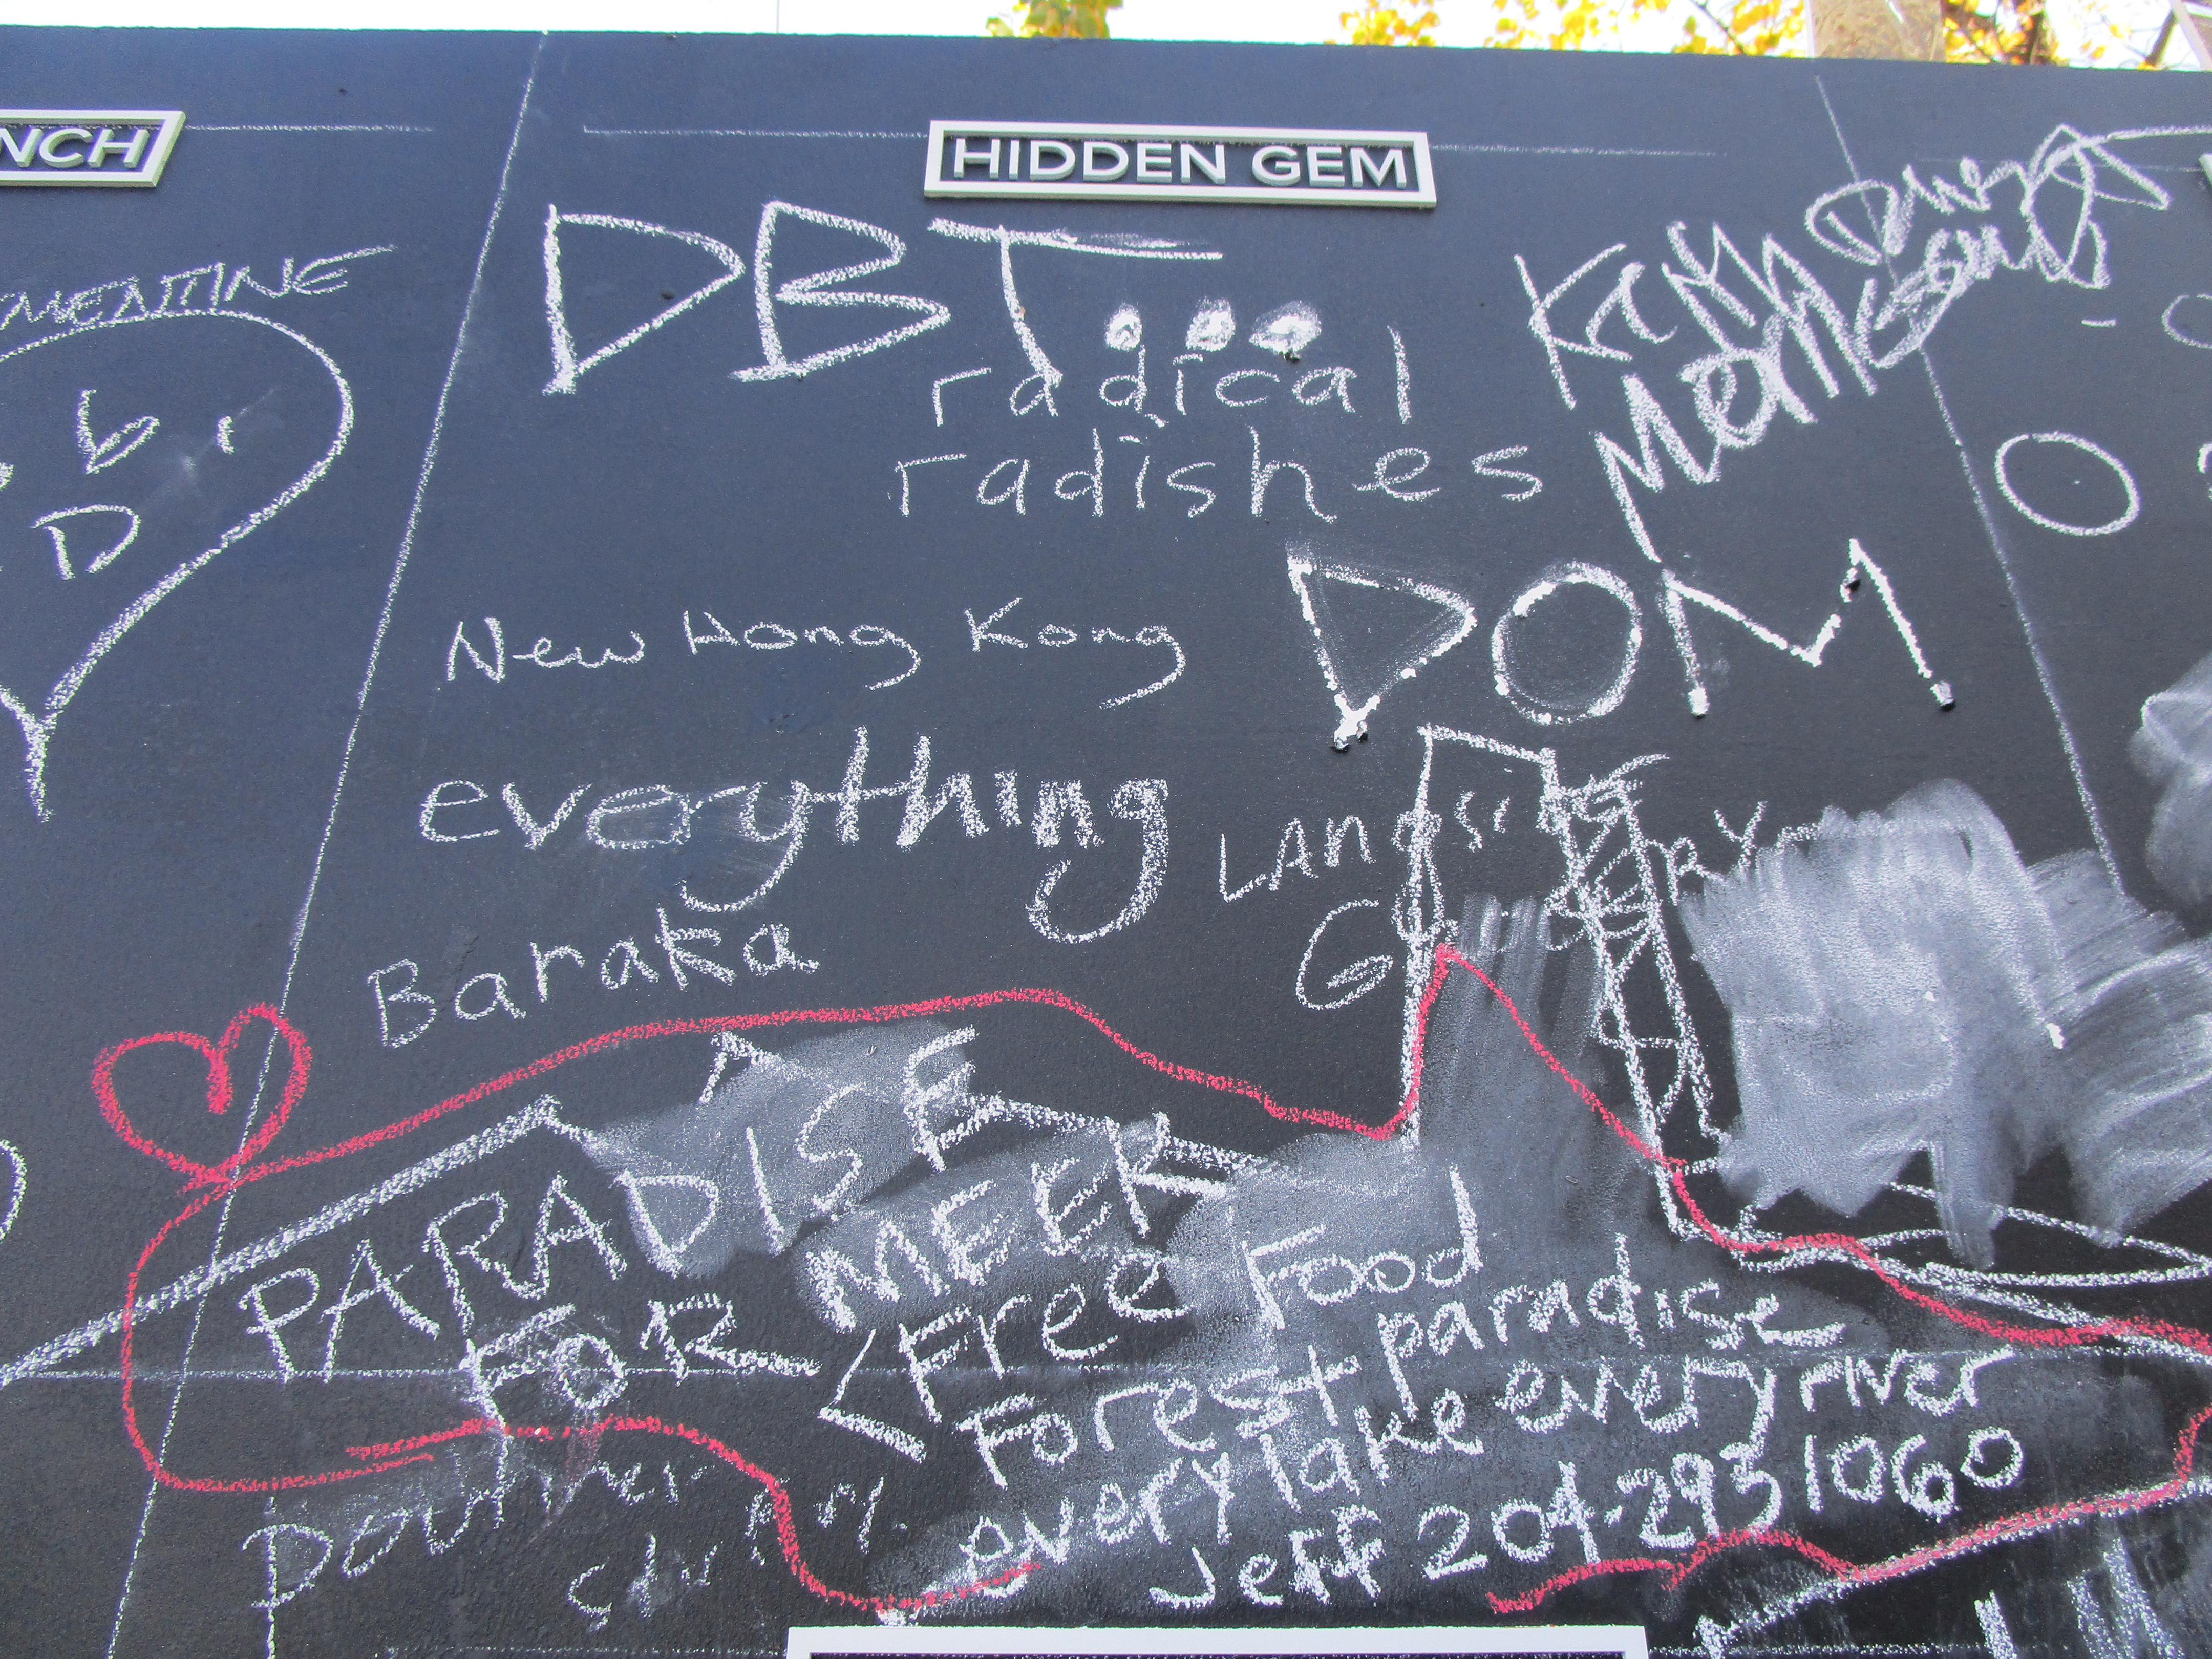 NCH
HIDDEN GEM
MENTINE
DBT...
radical
radishes
D
New Hong Kong
DOM
everything
LANDSIDE
Baraka
PARADISE
FOR MEEK
<Free Food
Forest paradise
every lake every river
Jeff 204-293 1060